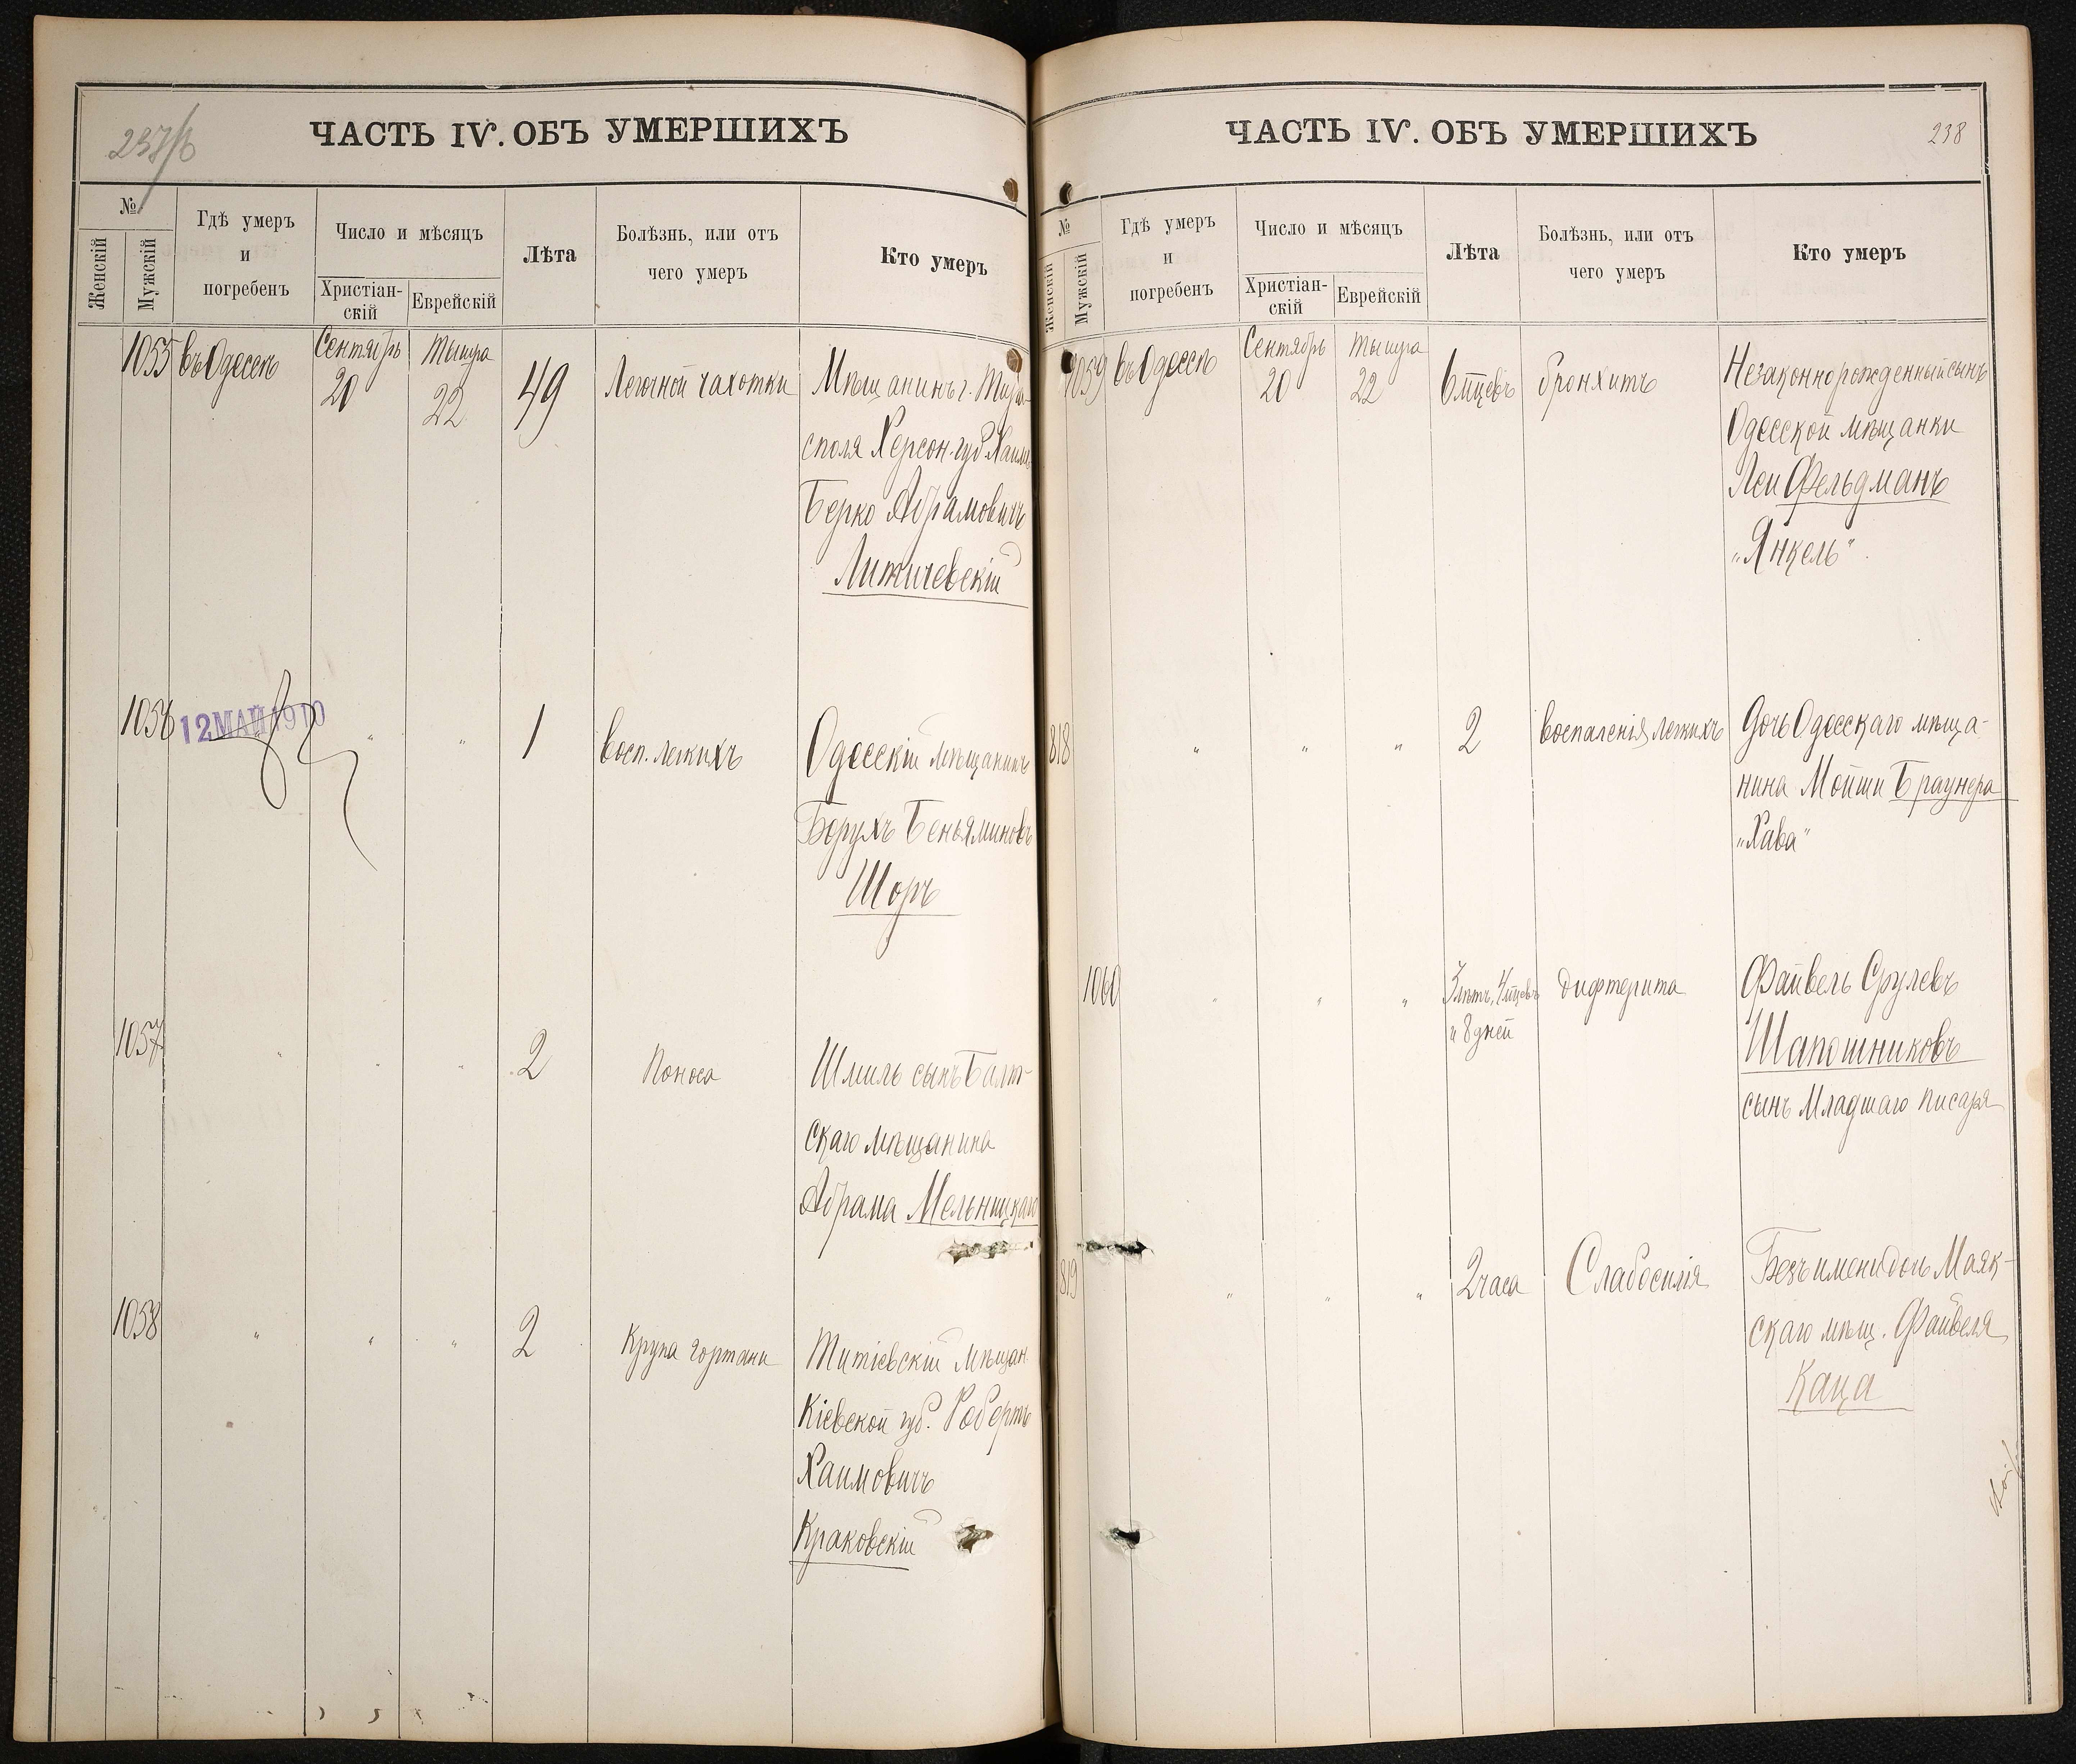 237/б
ЧАСТЬ IV. ОБЪ УМЕРШИХЪ
№
Женскій
Мужскій
Гдѣ умеръ
и
погребенъ
Число и мѣсяцъ
Христіан-
скій
Еврейскій
Лѣта
Болѣзнь, или отъ
чего умеръ
Кто умеръ
1055
въ Одессѣ
Сентябрь
20
Тышра
22
49
Легочной чахотки
Мѣщанинъ г. Тира-
споля Херсон. губ. Хаимъ
Берко Абрамовичъ
Литичевскій
1056
12 МАЙ 1910
"
"
"
1
восп. легкихъ
Одесскій мѣщанинъ
Борухъ Беньяминовъ
Шоръ
1057
"
"
"
2
Поноса
Шмиль сынъ Балт-
скаго мѣщанина
Абрама Мельницкаго
1058
"
"
"
2
Крупа гортани
Титіевскій мѣщан.
Кіевской губ. Робертъ
Хаимовичъ
Краковскій
ЧАСТЬ IV. ОБЪ УМЕРШИХЪ
238
№
Женскій
Мужскій
Гдѣ умеръ
и
погребенъ
Число и мѣсяцъ
Христіан-
скій
Еврейскій
Лѣта
Болѣзнь, или отъ
чего умеръ
Кто умеръ
1059
въ Одессѣ
Сентябрь
20
Тышра
22
6 мцевъ
бронхитъ
Незаконнорожденный сынъ
Одесской мѣщанки
Леи Фельдманъ
„Янкель“
818
"
"
"
2
воспаленія легкихъ
Дочь Одесскаго мѣща-
нина Мойши Браунера
„Хава“
1060
"
"
"
3 лѣтъ, 4 мцевъ
и 8 дней
дифтерита
Файвель Срулевъ
Шапошниковъ
сынъ Младшаго писаря
819
"
"
"
2 часа
Слабосилія
Безъ имени дочь Маяк-
скаго мѣщ. Файвеля
Каца